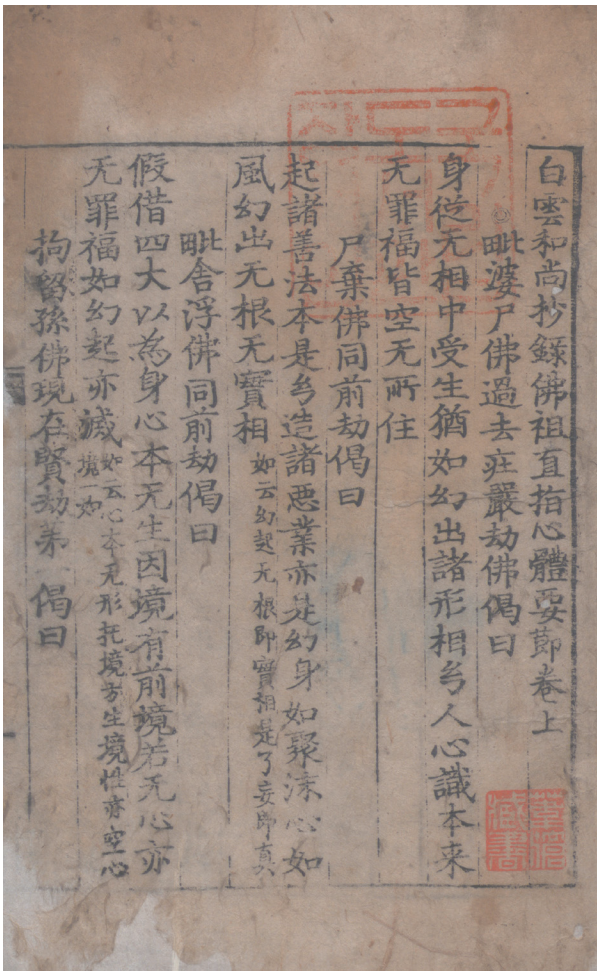 白雲和尚抄錄佛祖直指心體要節卷上
毗婆尸佛過去莊嚴劫佛偈曰
身從无相中受生猶如幻出諸形相幻人心識本来
无罪福皆空无所住
尸棄佛同前劫偈曰
起諸善法本是幻造諸惡業亦是幻身如聚沫心如
風幻出无根无實相
如云幻起无根即實相是了妄即真
毗舍浮佛同前劫偈曰
假借四大以為身心本无生因境有前境若无心亦
无罪福如幻起亦滅
如云心本无形托境方生境性亦空心
境一如
拘留孫佛現在賢劫第 偈曰